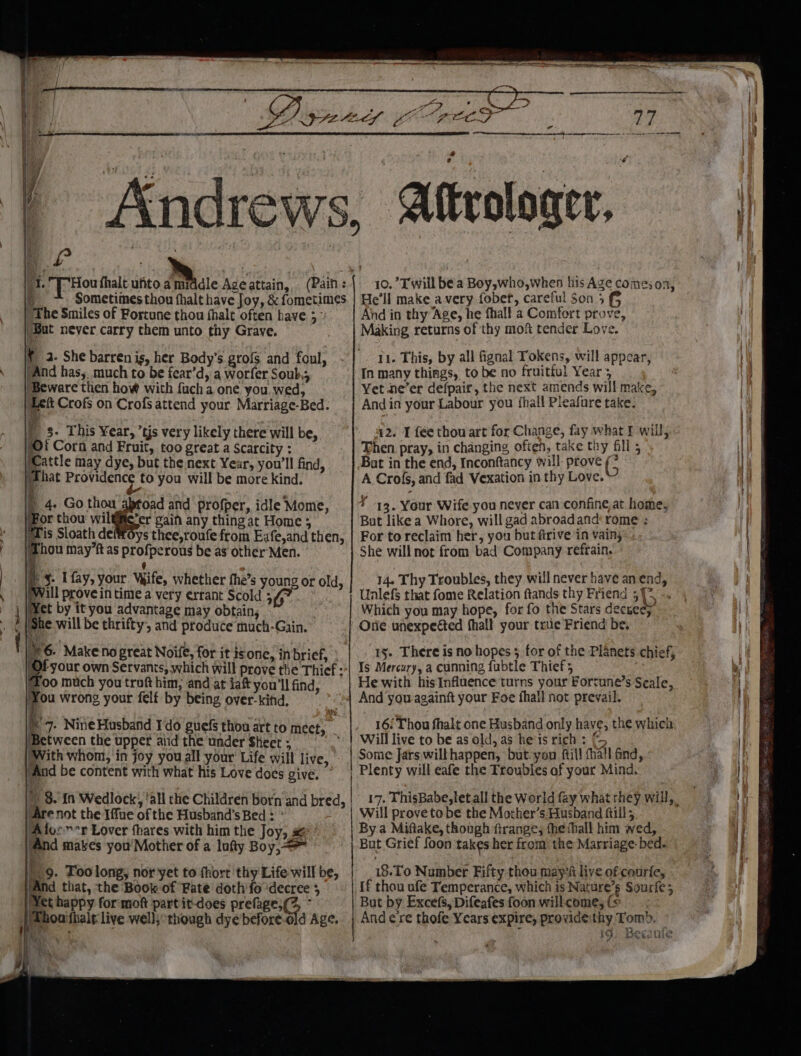 77
Andrews, Astrologer.
1. THou shalt unto a middle Age attain, (Pain:
Sometimes thou shalt have Joy, & sometimes
The Smiles of Fortune thou shalt often have;
But never carry them unto thy Grave.
2. She barren is, her Body's gross and foul,
And has, much to be fear'd, a worser Soul;
Beware then how with such a one you wed,
Left Cross on Cross attend your Marriage-Bed.
3. This Year, 'tis very likely there will be,
Of Corn and Fruit, too great a Scarcity:
Cattle may dye, but the next Year, you'll find,
That Providence to you will be more kind.
4. Go thou abroad and prosper, idle Mome,
For thou wilt ne'er gain any thing at Home;
'Tis Sloath destroys thee, rouse from Ease, and then,
Thou may'st as prosperous be as other Men.
5. I say, your Wife, whether she's young or old,
Will prove in time a very errant Scold;
Yet by it you advantage may obtain,
She will be thrifty, and produce much Gain.
6. Make no great Noise, for it is one, in brief,
Of your own Servants, which will prove the Thief:
Too much you trust him, and at last you'll find,
You wrong your self by being over-kind.
7. Nine Husband I do guess thou art to meet,
Between the upper and the under Sheet;
With whom, in joy you all your Life will live,
And be content with what his Love does give.
8. In Wedlock, all the Children born and bred,
Are not the Issue of the Husband's Bed:
A former Lover shares with him the Joy,
And makes you Mother of a lusty Boy,
9. Too long, nor yet to short thy Life will be,
And that, the Book of Fate doth so decree;
Yet happy for most part it does presage,
Thou shalt live well, though dye before old Age.
10. 'Twill be a Boy, who, when his Age comes on,
He'll make a very sober, careful Son;
And in thy Age, he shall a Comfort prove,
Making returns of thy most tender Love.
11. This, by all signal Tokens, will appear,
In many things, to be no fruitful Year;
Yet ne'er despair, the next amends will make,
And in your Labour you shall Pleasure take.
12. I see thou art for Change, say what I will,
Then pray, in changing often, take thy fill;
But in the end, Inconstancy will prove
A Cross, and sad Vexation in thy Love.
13. Your Wife you never can confine at home,
But like a Whore, will gad abroad and rome:
For to reclaim her, you but strive in vain,
She will not from bad Company refrain.
14. Thy Troubles, they will never have an end,
Unless that some Relation stands thy Friend;
Which you may hope, for so the Stars decree,
One unexpected shall your true Friend be.
15. There is no hopes; for of the Planets chief,
Is Mercury, a cunning subtle Thief;
He with his Influence turns your Fortune's Scale,
And you against your Foe shall not prevail.
16. Thou shalt one Husband only have, the which
Will live to be as old, as he is rich:
Some Jars will happen, but you still shall find,
Plenty will ease the Troubles of your Mind.
17. This Babe, let all the World say what they will,
Will prove to be the Mother's Husband still;
By a Mistake, though strange, she shall him wed,
But Grief soon takes her from the Marriage-bed.
18. To Number Fifty thou may'st live of course,
If thou use Temperance, which is Nature's Sourse;
But by Excess, Diseases soon will come,
And e're those Years expire, provide thy Tomb.
19. Because